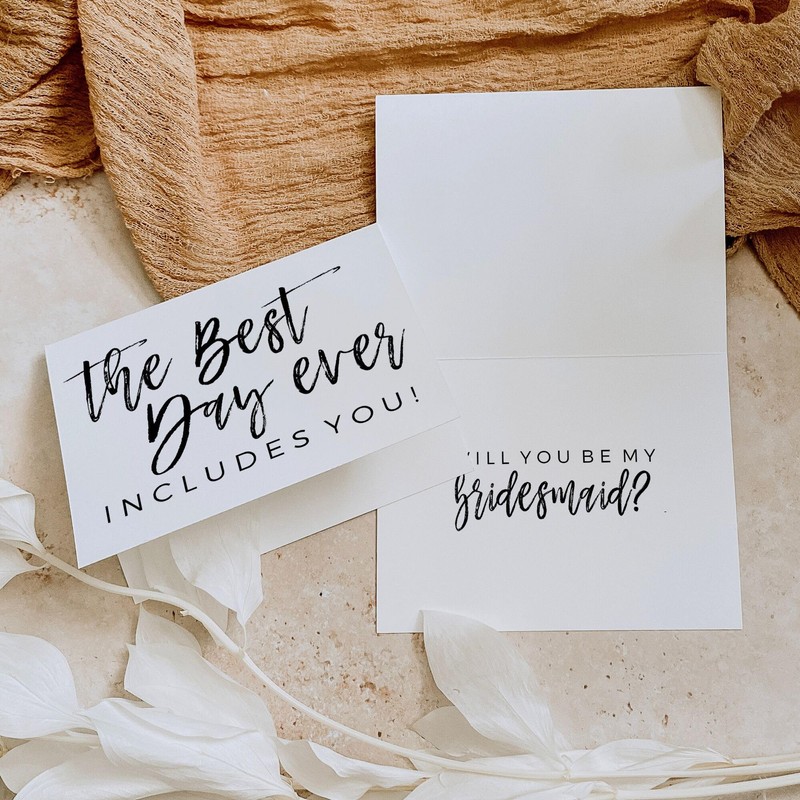 the Best
Day ever
INCLUDES YOU!
WILL YOU BE MY
bridesmaid?